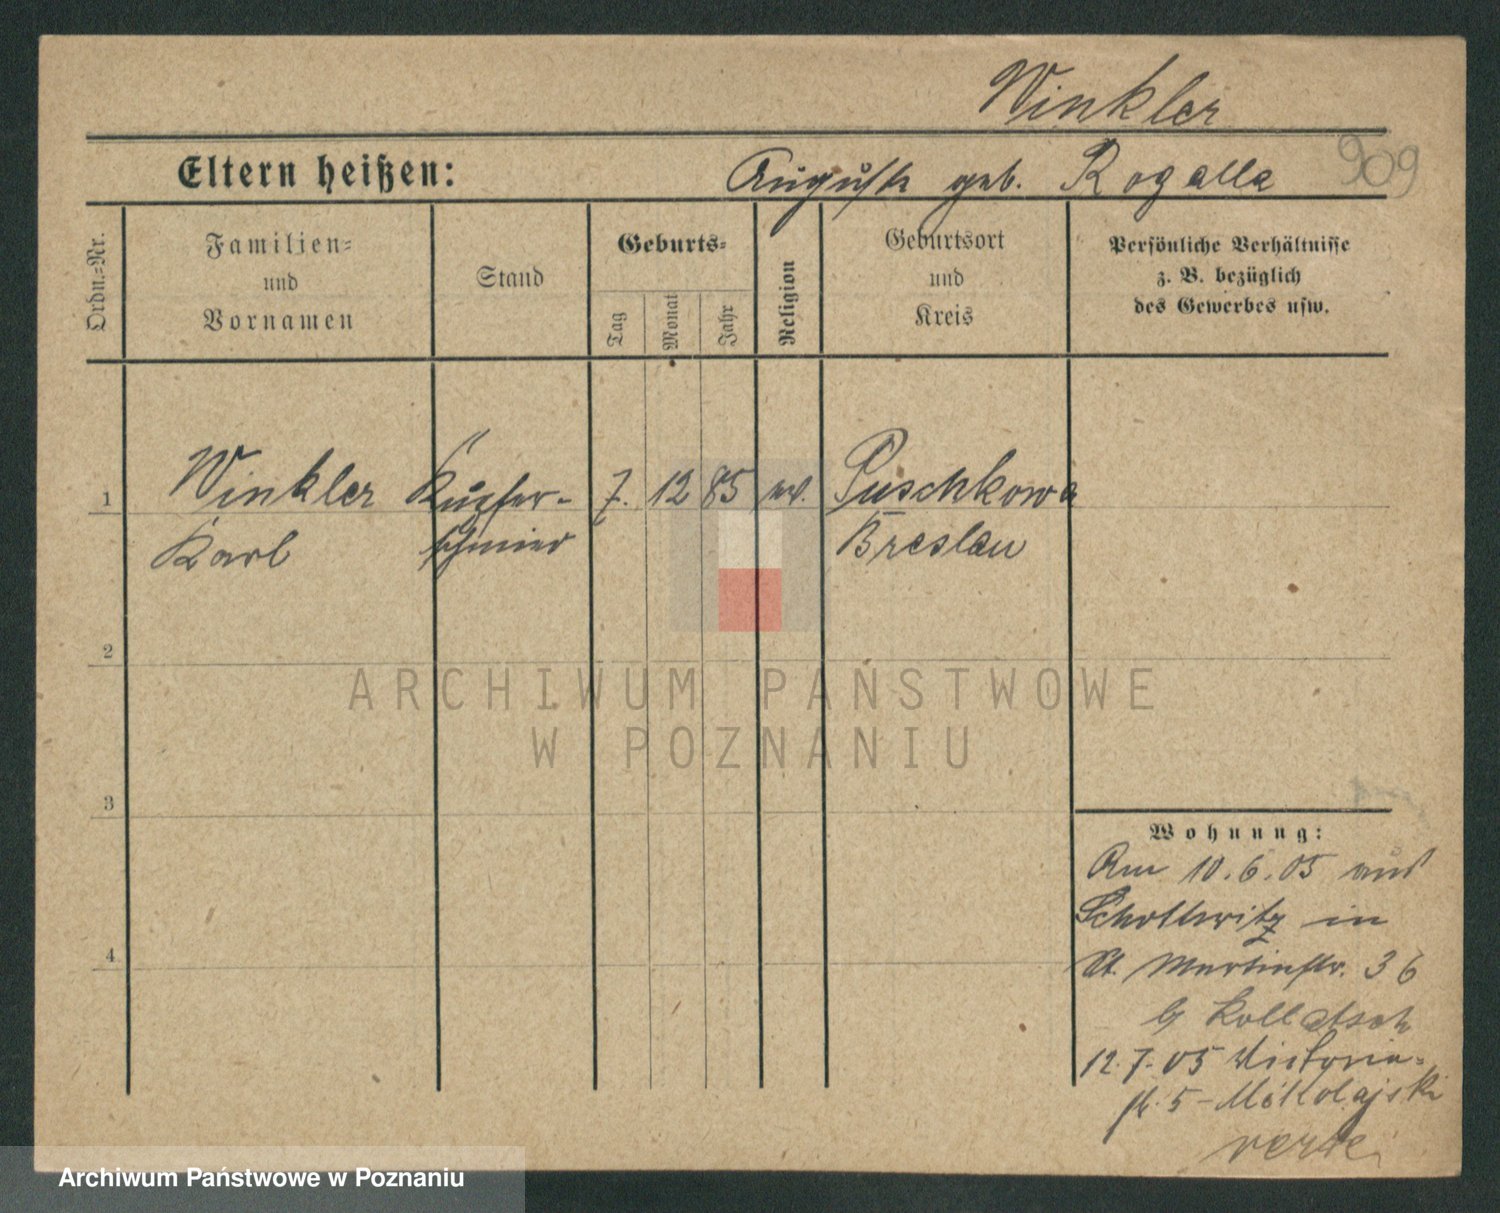 Winkler
Eltern heißen: Auguste geb. Rogalla 909
Ordn.=Nr.
Familien=
und
Vornamen
Stand
Geburts=
Tag
Monat
Jahr
Religion
Geburtsort
und
Kreis
Persönliche Verhältnisse
z. B. bezüglich
des Gewerbes usw.
1 Winkler Kupfer- 7. 12 85 ev. Puschkowa
Karl schmied Breslau
2
3
4
ARCHIWUM PAŃSTWOWE
W POZNANIU
Wohnung:
Am 10.6.05 aus
Schottwitz in
St. Martinstr. 36
b
12.7.05 Victoria=
str. 5 - Mikolajski
Archiwum Państwowe w Poznaniu